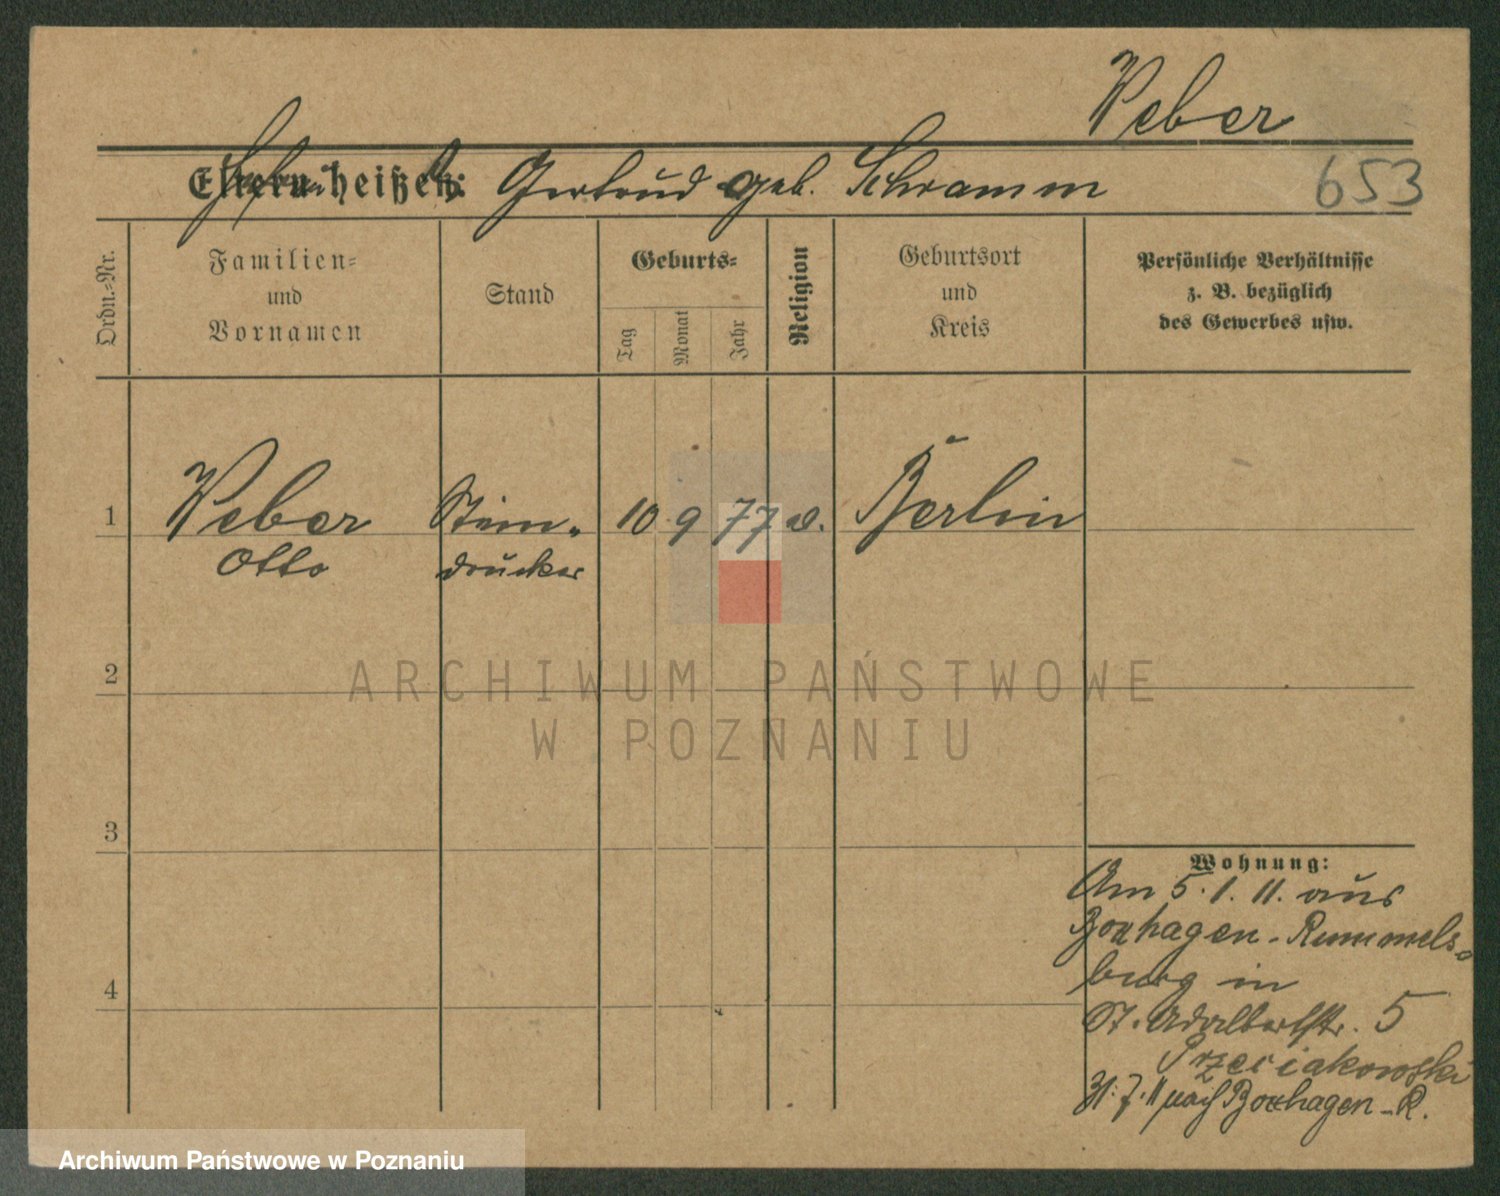 Weber
Eltern heißen: Gertrud geb. Schramm
653
Ordn.-Nr.
Familien-
und
Vornamen
Stand
Geburts-
Tag
Monat
Jahr
Religion
Geburtsort
und
Kreis
Persönliche Verhältnisse
z. B. bezüglich
des Gewerbes usw.
1
Weber
Otto
Stein-
drucker
10 9 77
Berlin
2
ARCHIWUM PAŃSTWOWE
W POZNANIU
3
4
Wohnung:
Am 5.1.11. aus
Boxhagen-Rummels-
burg in
St. Adalbertstr. 5
Przeciakowski
nach Boxhagen-R.
Archiwum Państwowe w Poznaniu